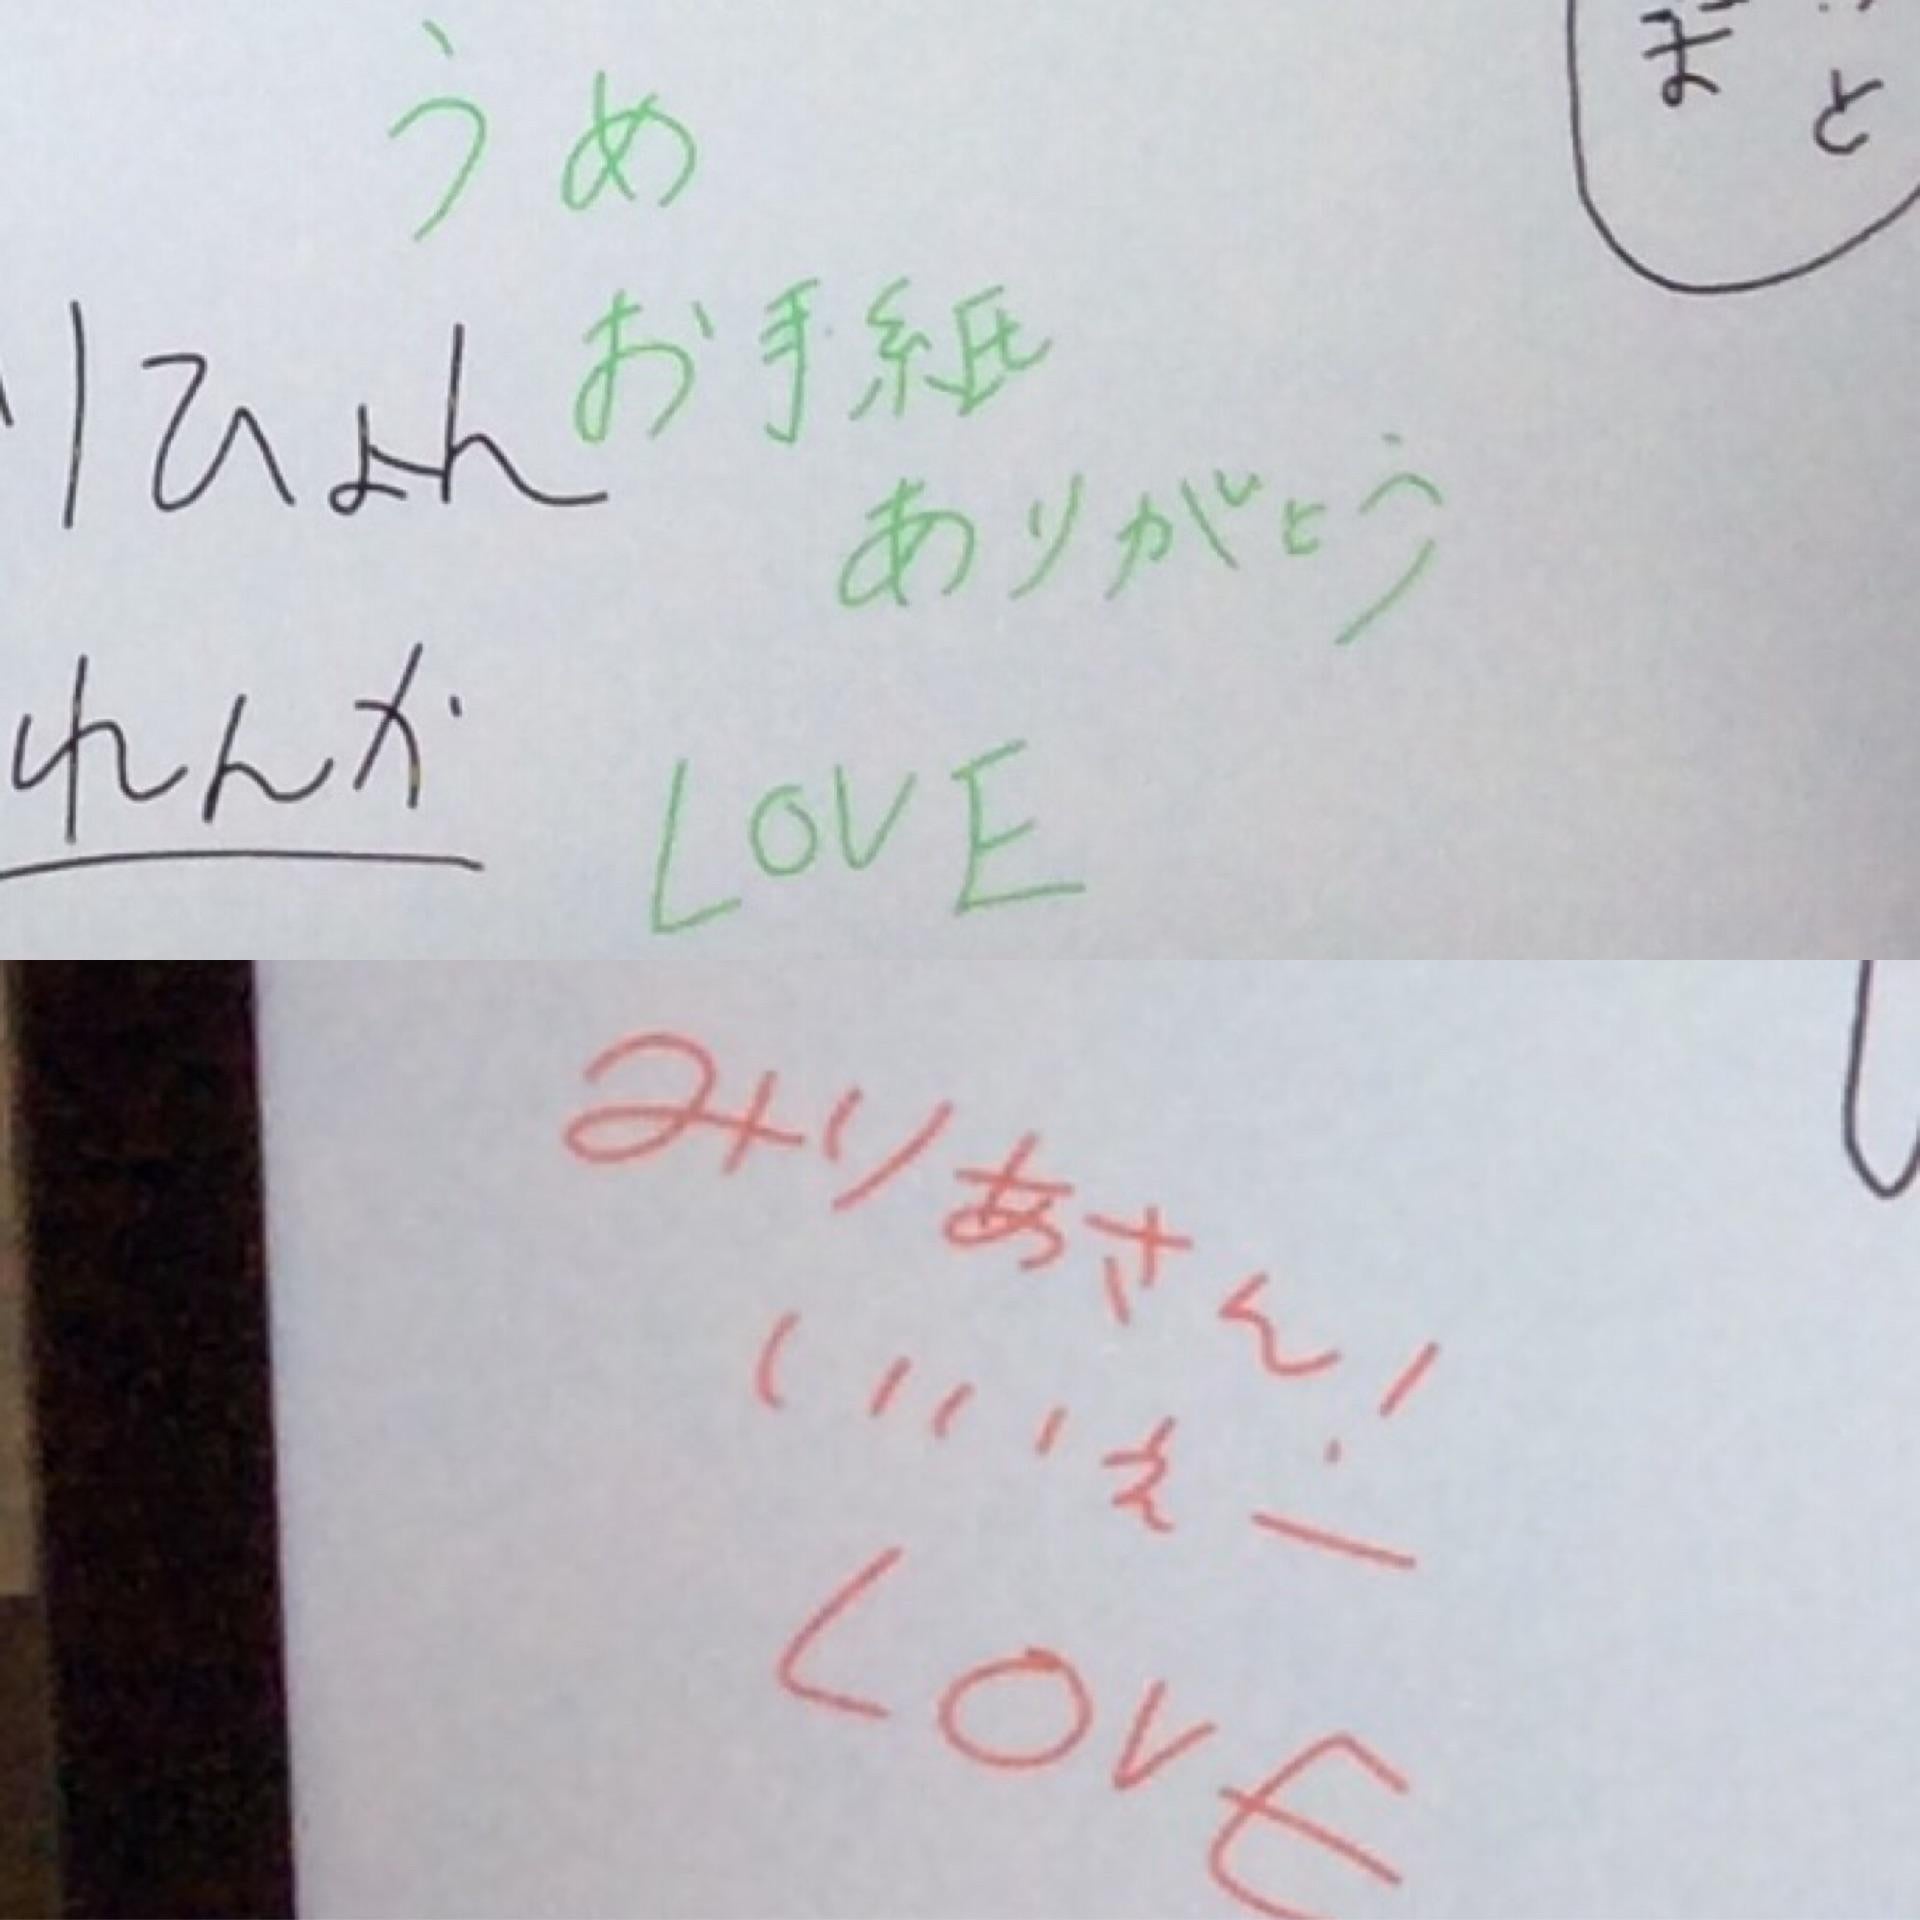 うめ
お手紙
ありがとう
LOVE
りひょん
れんか
ま
と
みりあさん!
いいえー
LOVE